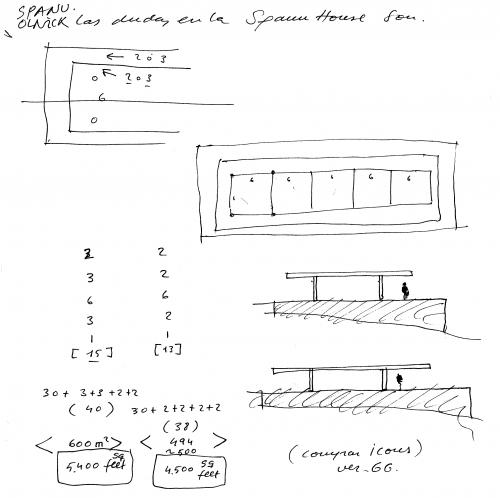 SPANU.
OLNICK Las dudas en la Spanu House son.
← 2 ó 3
0 ← 2 ó 3
6
0
6 6 6 6
2 2
3 2
6 6
3 2
1 1
[15] [13]
30+ 3+3+2+2
(40)
30+2+2+2+2
(38)
< 600 m² >
< 494 >
~500
5.400 sq feet
4.500 sq feet
(comprar icons)
ver. GG.